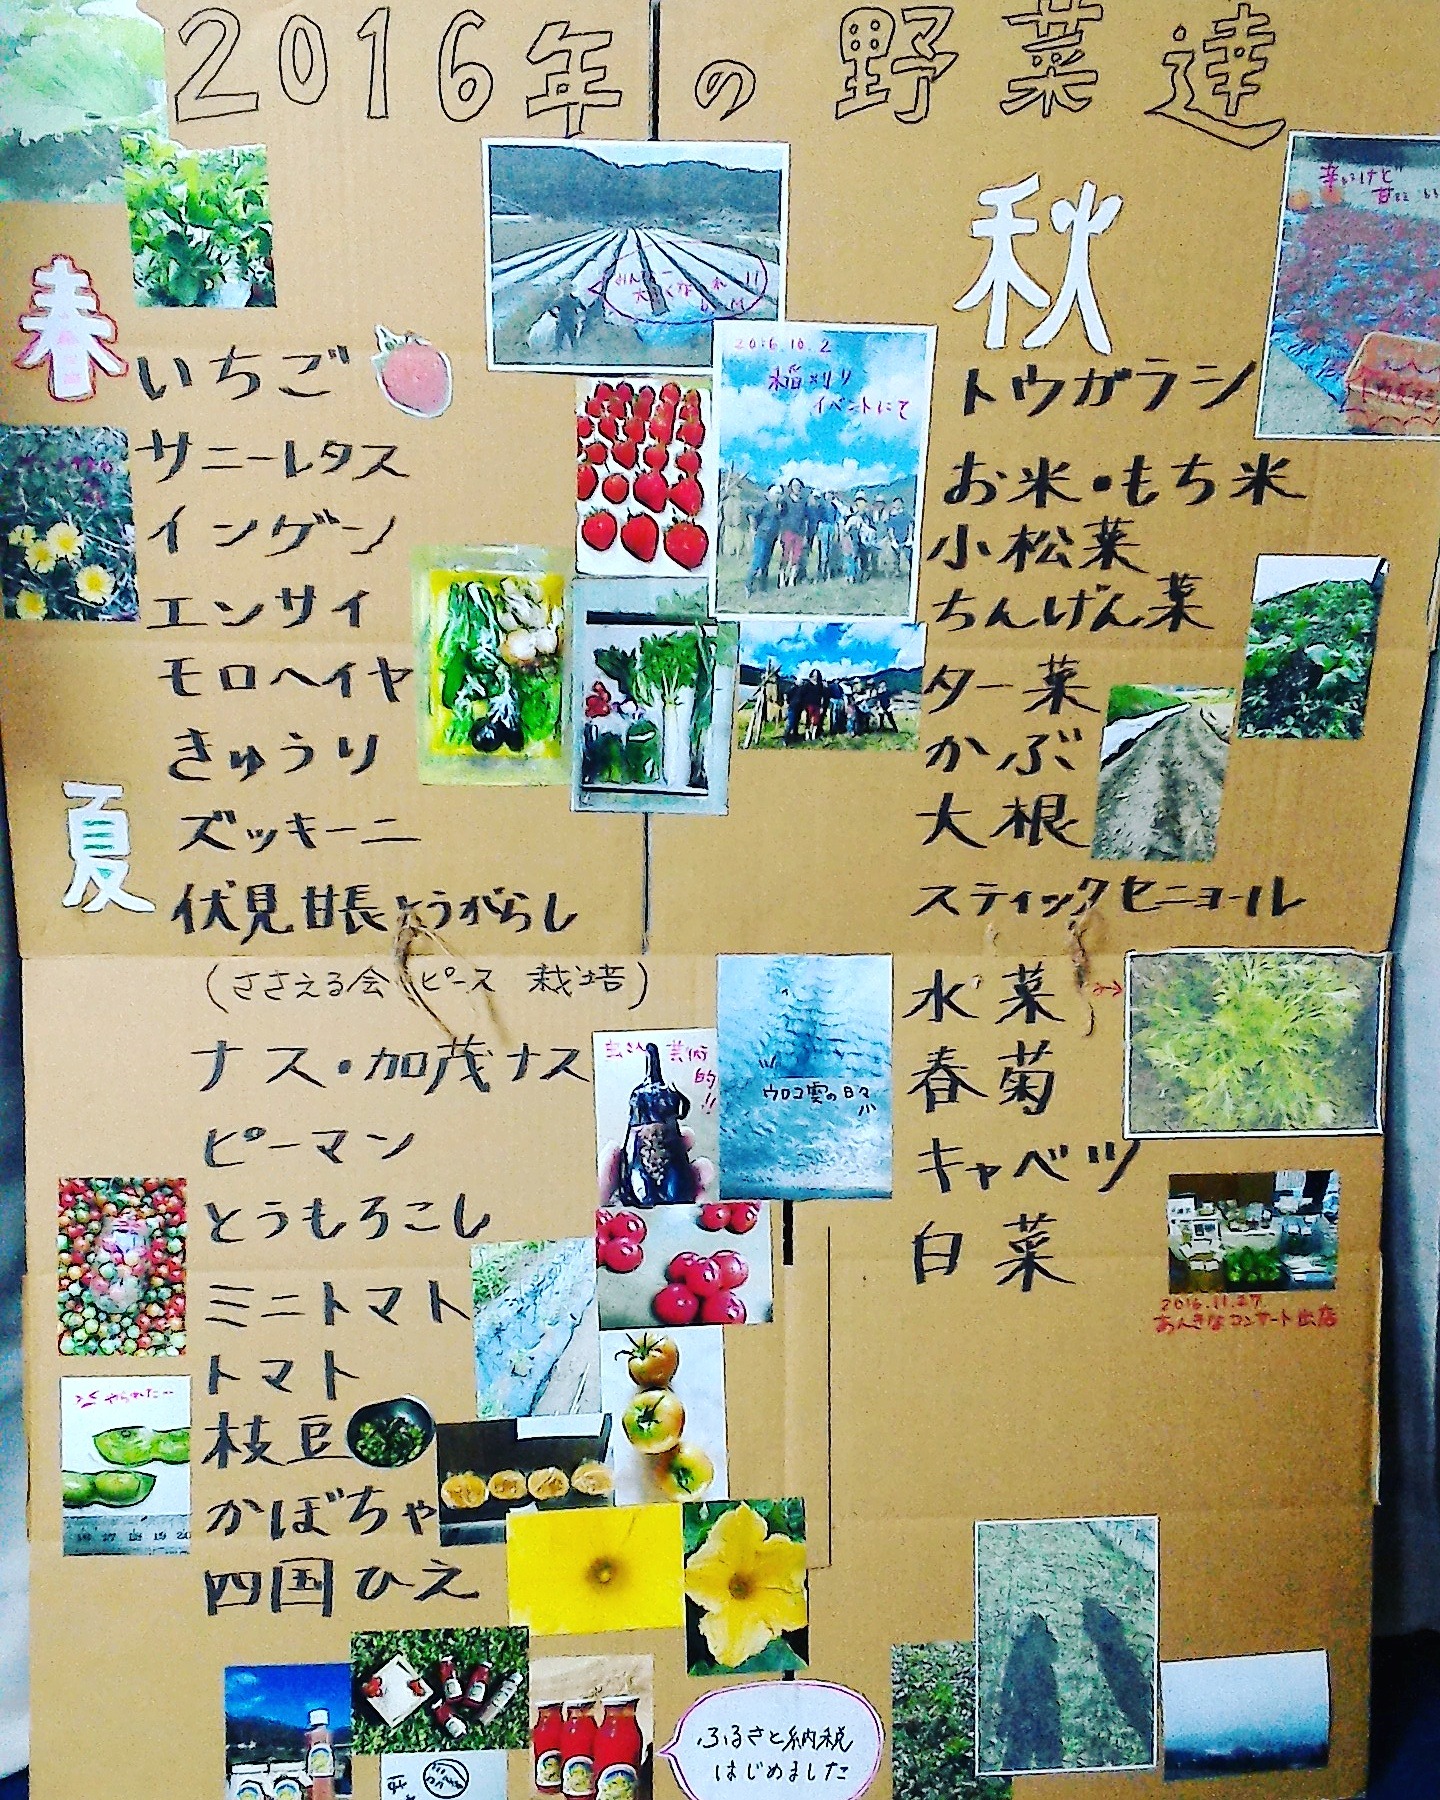 2016年の野菜達
春
いちご
サニーレタス
インゲン
エンサイ
モロヘイヤ
きゅうり
夏
ズッキーニ
伏見甘長とうがらし
(ささえる会 ピース 栽培)
ナス・加茂ナス
ピーマン
とうもろこし
ミニトマト
トマト
枝豆
かぼちゃ
四国ひえ
2016.10.2
稲刈り
イベントにて
芸術
的!!
ウロコ雲の日々
やられた…
ふるさと納税
はじめました
秋
辛いけど
トウガラシ
お米・もち米
小松菜
ちんげん菜
ター菜
かぶ
大根
スティックセニョール
水菜
春菊
キャベツ
白菜
2016.11.27
あんきなコンサート出店